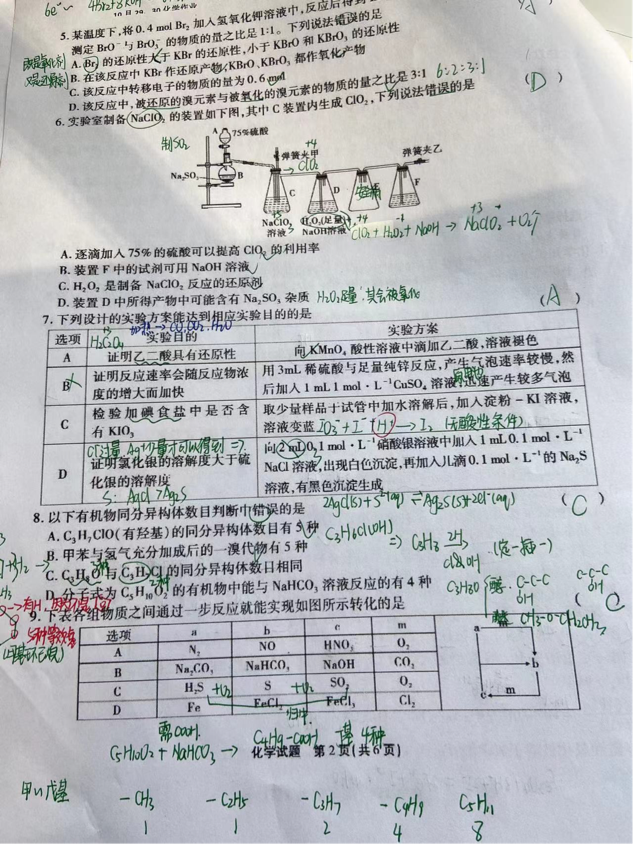 5. 某温度下,将0.4 mol Br₂ 加入氢氧化钾溶液中,反应后得到
测定BrO⁻与BrO₃⁻的物质的量之比是1:1。下列说法错误的是
A. Br₂的还原性大于KBr的还原性,小于KBrO和KBrO₃的还原性
B. 在该反应中KBr作还原产物,KBrO、KBrO₃都作氧化产物
C. 该反应中转移电子的物质的量为0.6 mol
D. 该反应中,被还原的溴元素与被氧化的溴元素的物质的量之比是3:1
6:2=3:1
(D)
6. 实验室制备NaClO₂的装置如下图,其中C装置内生成ClO₂,下列说法错误的是
制SO₂
A 75%硫酸
弹簧夹甲
弹簧夹乙
+4
ClO₂
Na₂SO₃
B
C
D
F
NaClO₃
溶液
H₂O₂(足量)
NaOH溶液
ClO₂+H₂O₂+NaOH→NaClO₂+O₂↑
A. 逐滴加入75%的硫酸可以提高ClO₂的利用率
B. 装置F中的试剂可用NaOH溶液
C. H₂O₂是制备NaClO₂反应的还原剂
D. 装置D中所得产物中可能含有Na₂SO₃杂质
(A)
7. 下列设计的实验方案能达到相应实验目的的是
选项 实验目的 实验方案
H₂C₂O₄
A 证明乙二酸具有还原性 向KMnO₄酸性溶液中滴加乙二酸,溶液褪色
B 证明反应速率会随反应物浓度的增大而加快 用3mL稀硫酸与足量纯锌反应,产生气泡速率较慢,然
后加入1 mL 1 mol·L⁻¹CuSO₄溶液,迅速产生较多气泡
C 检验加碘食盐中是否含有KIO₃ 取少量样品于试管中加水溶解后,加入淀粉-KI溶液,
溶液变蓝 IO₃⁻+I⁻+H⁺→I₂ (无酸性条件)
D 证明氯化银的溶解度大于硫化银的溶解度 向2 mL 0.1 mol·L⁻¹硝酸银溶液中加入1 mL 0.1 mol·L⁻¹
NaCl溶液,出现白色沉淀,再加入几滴0.1 mol·L⁻¹的Na₂S
溶液,有黑色沉淀生成
S: AgCl>Ag₂S
2AgCl(s)+S²⁻(aq)⇌Ag₂S(s)+2Cl⁻(aq)
8. 以下有机物同分异构体数目判断中错误的是
(C)
A. C₃H₇ClO(有羟基)的同分异构体数目有5种
B. 甲苯与氢气充分加成后的一溴代物有5种
C. C₃H₈O与C₃H₇Cl的同分异构体数目相同
D. 分子式为C₅H₁₀O₂的有机物中能与NaHCO₃溶液反应的有4种
(C
9. 下表各组物质之间通过一步反应就能实现如图所示转化的是
选项 a b c m
A N₂ NO HNO₃ O₂
B Na₂CO₃ NaHCO₃ NaOH CO₂
C H₂S S SO₃ O₂
D Fe FeCl₂ FeCl₃ Cl₂
a
b
c
m
需COOH
C₅H₁₀O₂+NaHCO₃→
C₄H₉-COOH
4种
化学试题 第2页(共6页)
-CH₃ -C₂H₅ -C₃H₇ -C₄H₉ C₅H₁₁
1 1 2 4 8